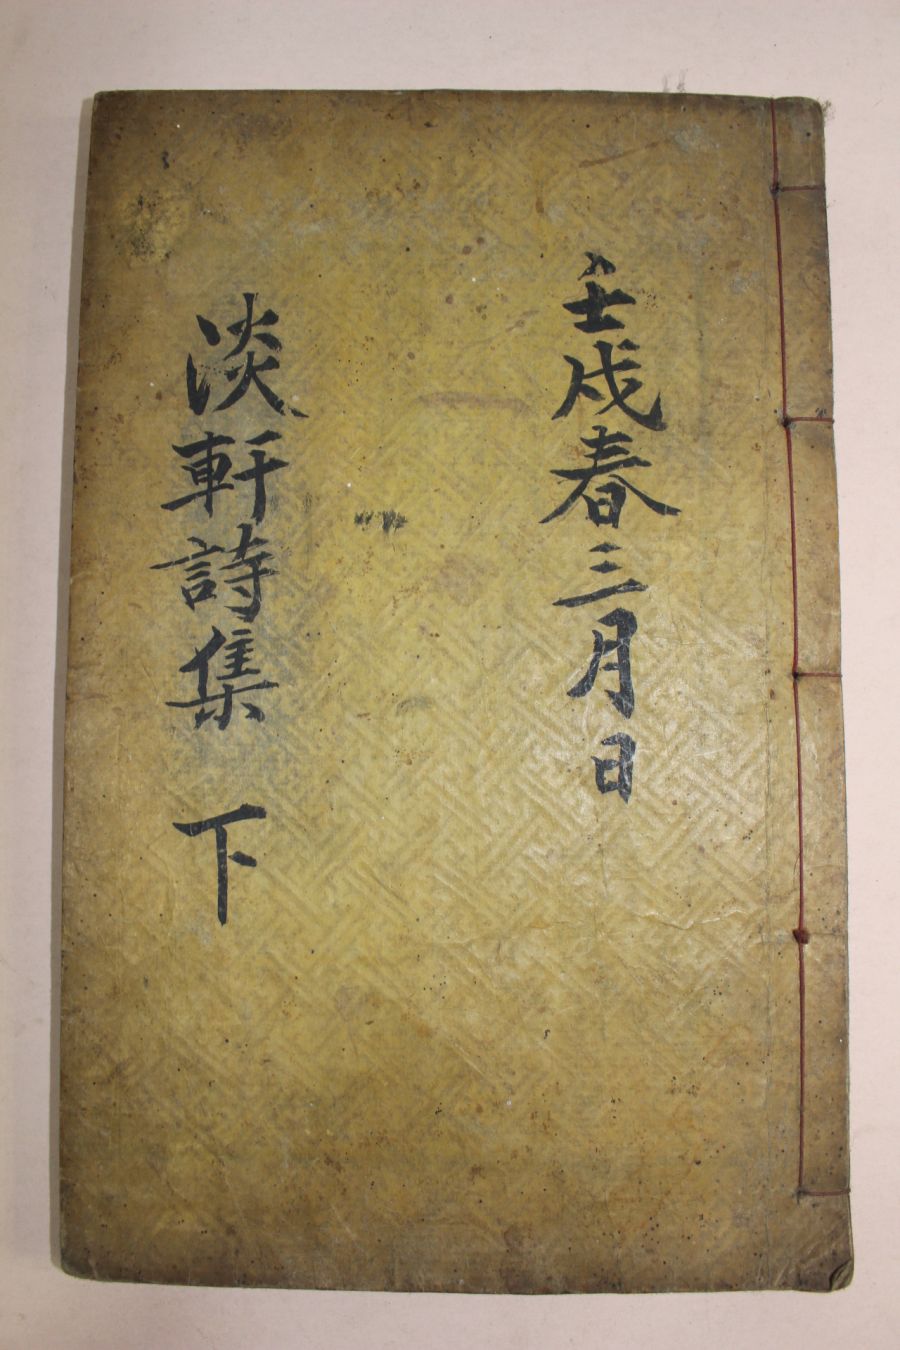 壬戌春三月日
淡軒詩集 下